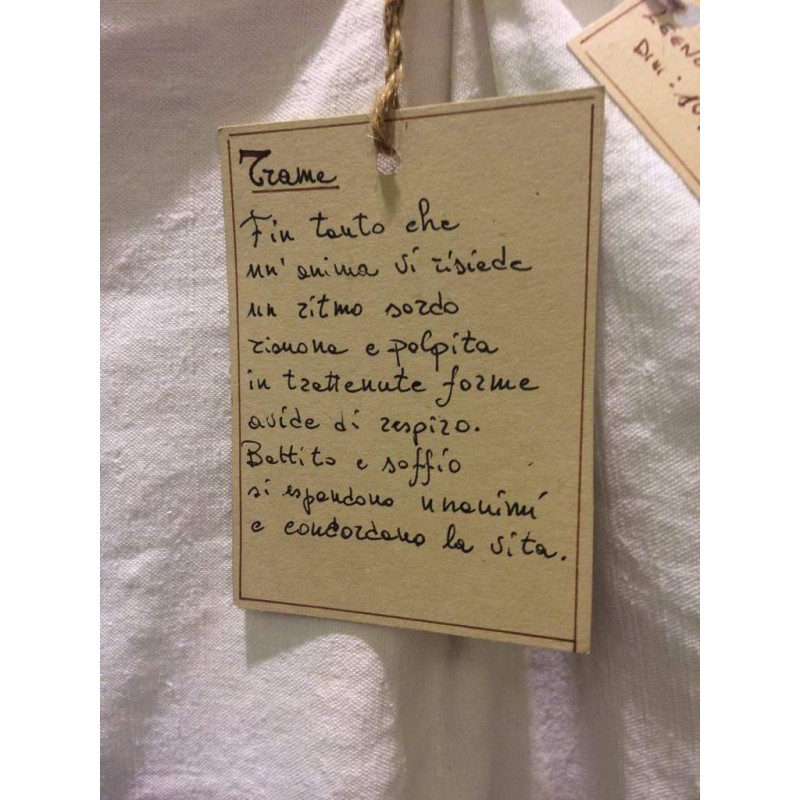 Trame
Fin tanto che
un' anima vi risiede
un ritmo sordo
risuona e palpita
in trattenute forme
avide di respiro.
Battito e soffio
si espandono unanimi
e concordano la vita.
Dini :